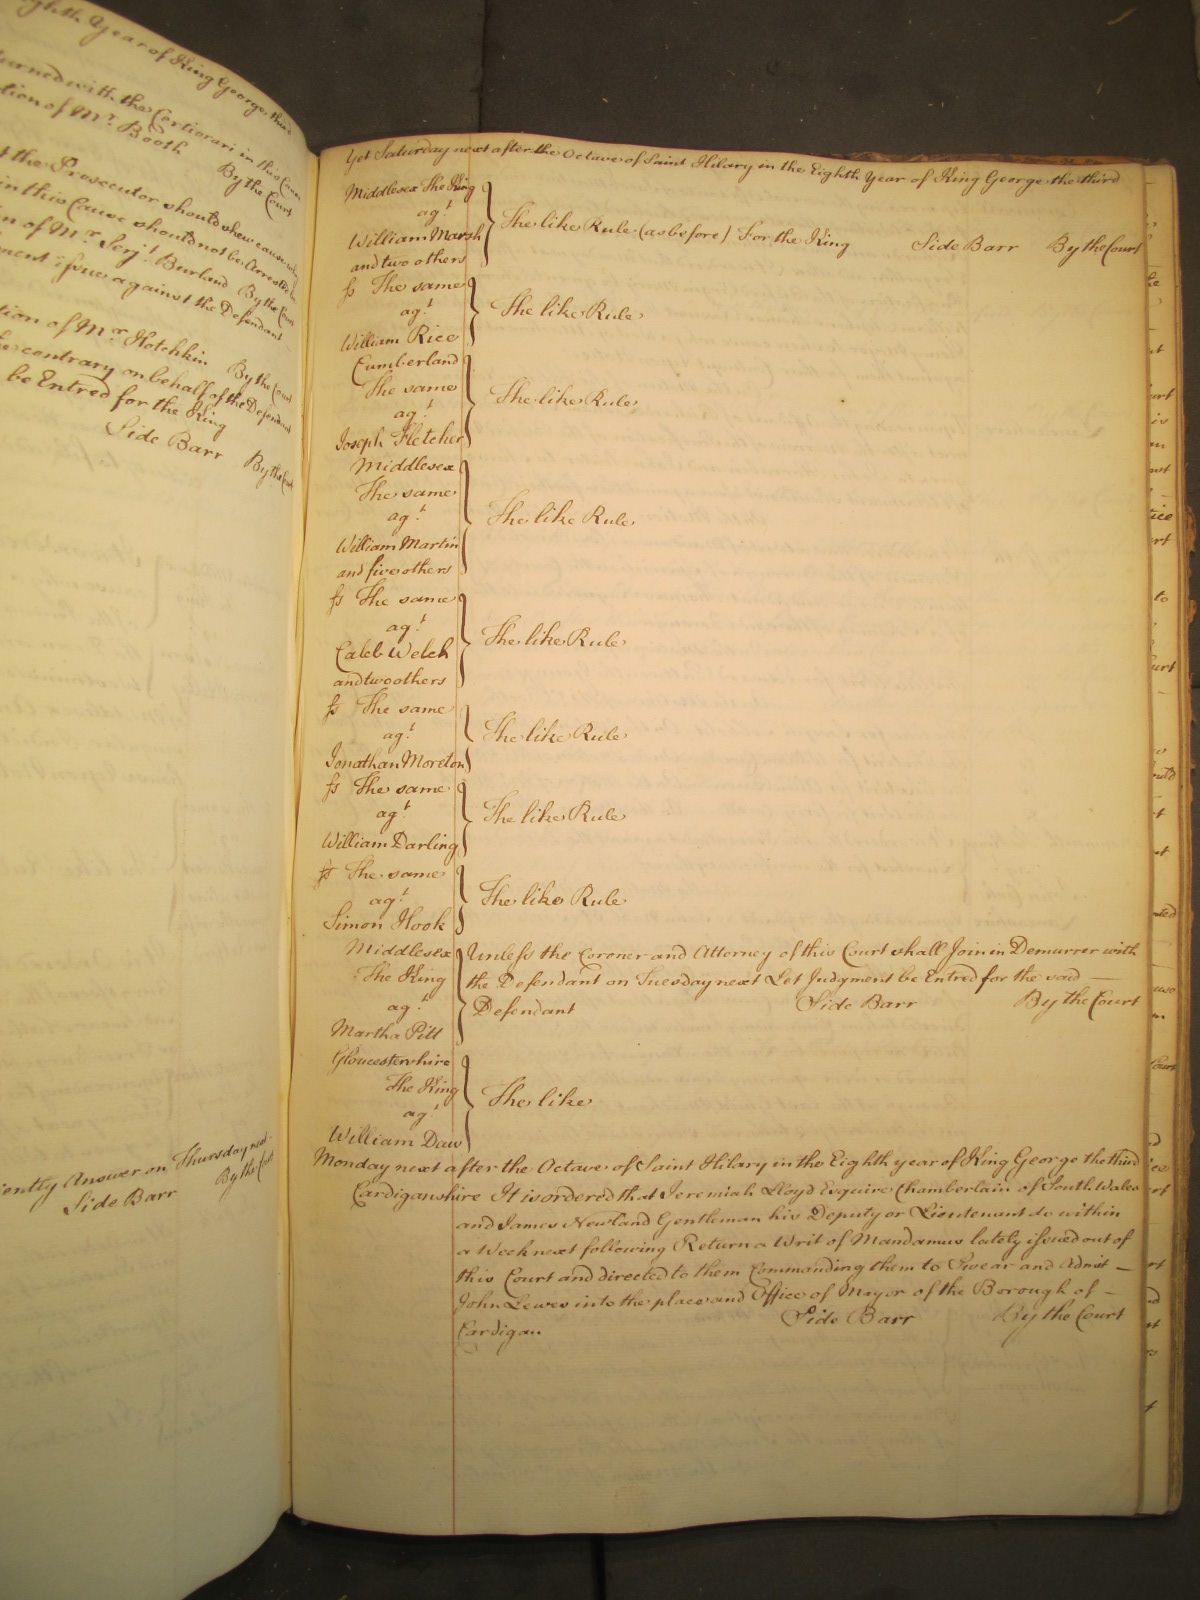 Year of King George third
turned with the Certiorari in this Cause
tion of Mr. Booth By the Court
the Prosecutor should shew cause why
in this Cause should not be Arrested
n of Mr. Serjt. Burland By the Court
ment issue against the Defendant
tion of Mr. Hotchkin By the Court
contrary on behalf of the Defendant
be Entred for the King
Side Barr By the Court
iently Answer on Thursday next
Side Barr By the Court
Yet Saturday next after the Octave of Saint Hilary in the Eighth Year of King George the third
Middlesex The King
agt.
William Marsh
and two others
The like Rule (as before) For the King Side Barr By the Court
ss The same
agt.
William Rice
The like Rule
Cumberland
The same
agt.
Joseph Fletcher
The like Rule
Middlesex
The same
agt.
William Martin
and five others
The like Rule
ss The same
agt.
Caleb Welch
and two others
The like Rule
ss The same
agt.
Jonathan Moreton
The like Rule
ss The same
agt.
William Darling
The like Rule
ss The same
agt.
Simon Hook
The like Rule
Middlesex
The King
agt.
Martha Pitt
Unless the Coroner and Attorney of this Court shall Join in Demurrer with
the Defendant on Tuesday next Let Judgment be Entred for the said
Defendant Side Barr By the Court
Gloucestershire
The King
agt.
William Daw
The like
Monday next after the Octave of Saint Hilary in the Eighth year of King George the third
Cardiganshire It is ordered that Jeremiah Lloyd Esquire Chamberlain of South Wales
and James Newland Gentleman his Deputy or Lieutenant do within
a Week next following Return a Writ of Mandamus lately issued out of
this Court and directed to them Commanding them to Swear and Admit
John Lewes into the place and Office of Mayor of the Borough of
Cardigan Side Barr By the Court